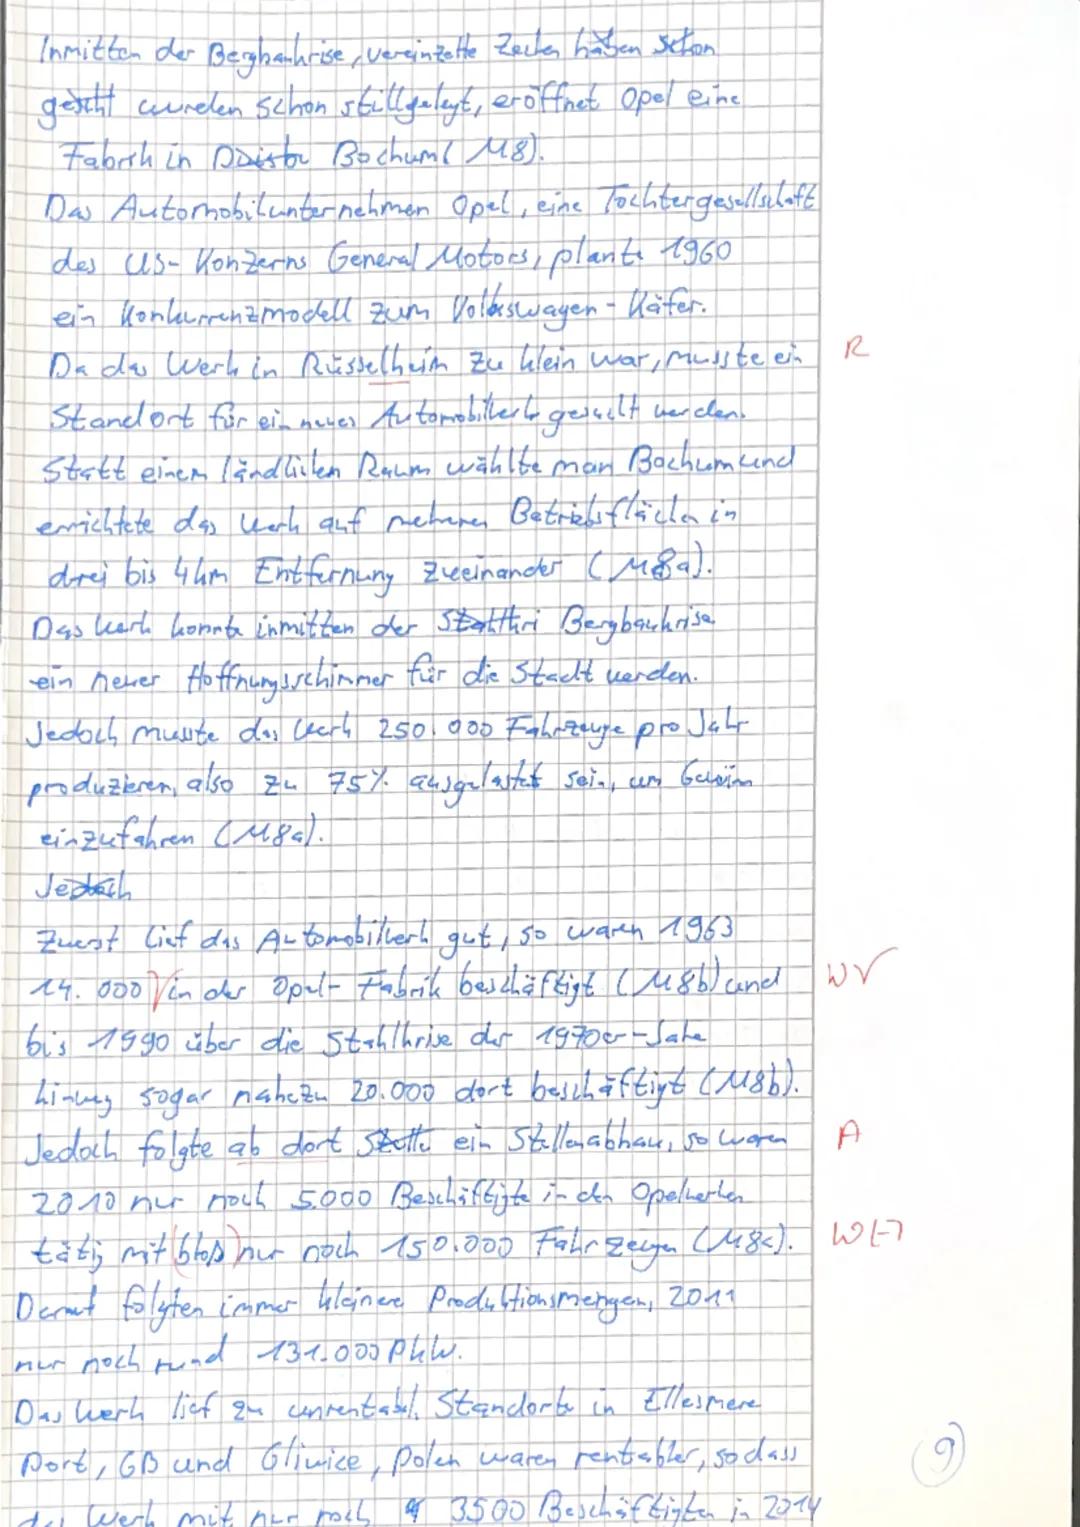 Inmitten der Bergbaukrise, vereinzelte Zechen haben schon
gescht wurden schon stillgelegt, eröffnet Opel eine
Fabrik in Duisbu Bochum (M8).
Das Automobilunternehmen Opel, eine Tochtergesellschaft
des US-Konzerns General Motors, plante 1960
ein Konkurrenzmodell zum Volkswagen-Käfer.
Da das Werk in Rüsselheim zu klein war, musste ein R
Standort für ein neues Automobilwerk gesucht werden.
Statt einem ländlichen Raum wählte man Bochum und
errichtete das Werk auf mehreren Betriebsflächen in
drei bis 4km Entfernung zueinander (M8a).
Das Werk konnte inmitten der Bergbaukrise
ein neuer Hoffnungsschimmer für die Stadt werden.
Jedoch musste das Werk 250.000 Fahrzeuge pro Jahr
produzieren, also zu 75% ausgelastet sein, um Gewinn
einzufahren (M8a).
Jedoch
Zuerst lief das Automobilwerk gut, so waren 1963
14.000 √ in der Opel-Fabrik beschäftigt (M8b) und W√
bis 1990 über die Stahlkrise der 1970er-Jahre
hinweg sogar nahezu 20.000 dort beschäftigt (M8b).
Jedoch folgte ab dort Stelle ein Stellenabbau, so waren A
2010 nur noch 5.000 Beschäftigte in den Opelwerken
tätig mit (bloß) nur noch 150.000 Fahrzeugen (M8c). W[-]
Darauf folgten immer kleinere Produktionsmengen, 2011
nur noch rund 131.000 PKW.
Das Werk lief zu unrentabel, Standorte in Ellesmere
Port, GB und Gliwice, Polen waren rentabler, sodass 9
das Werk mit nur noch 3500 Beschäftigten in 2014